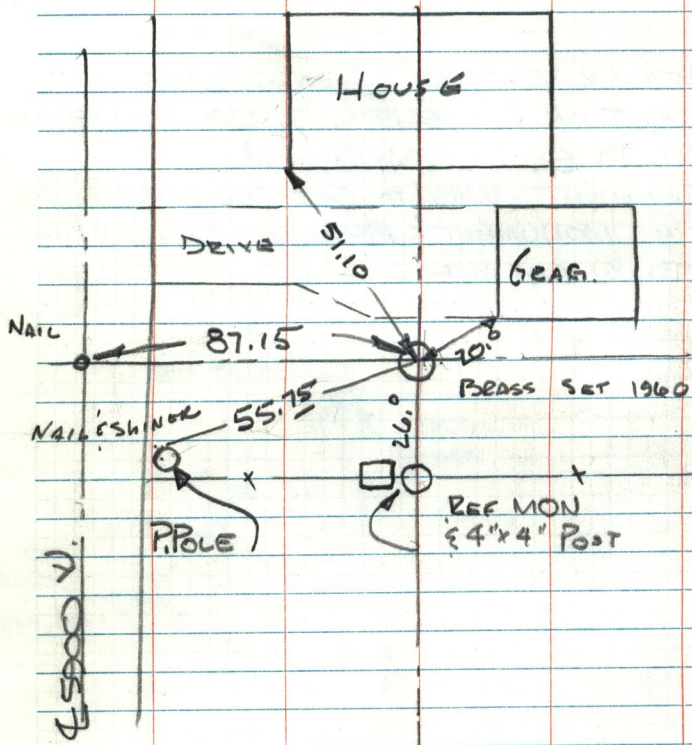 HOUSE
DRIVE
51.10
GRAG.
NAIL
87.15
20.8
BRASS SET 1960
NAIL & SHINER
55.75
26.0
P.POLE
REF MON
& 4"x4" POST
℄ 5900 W.